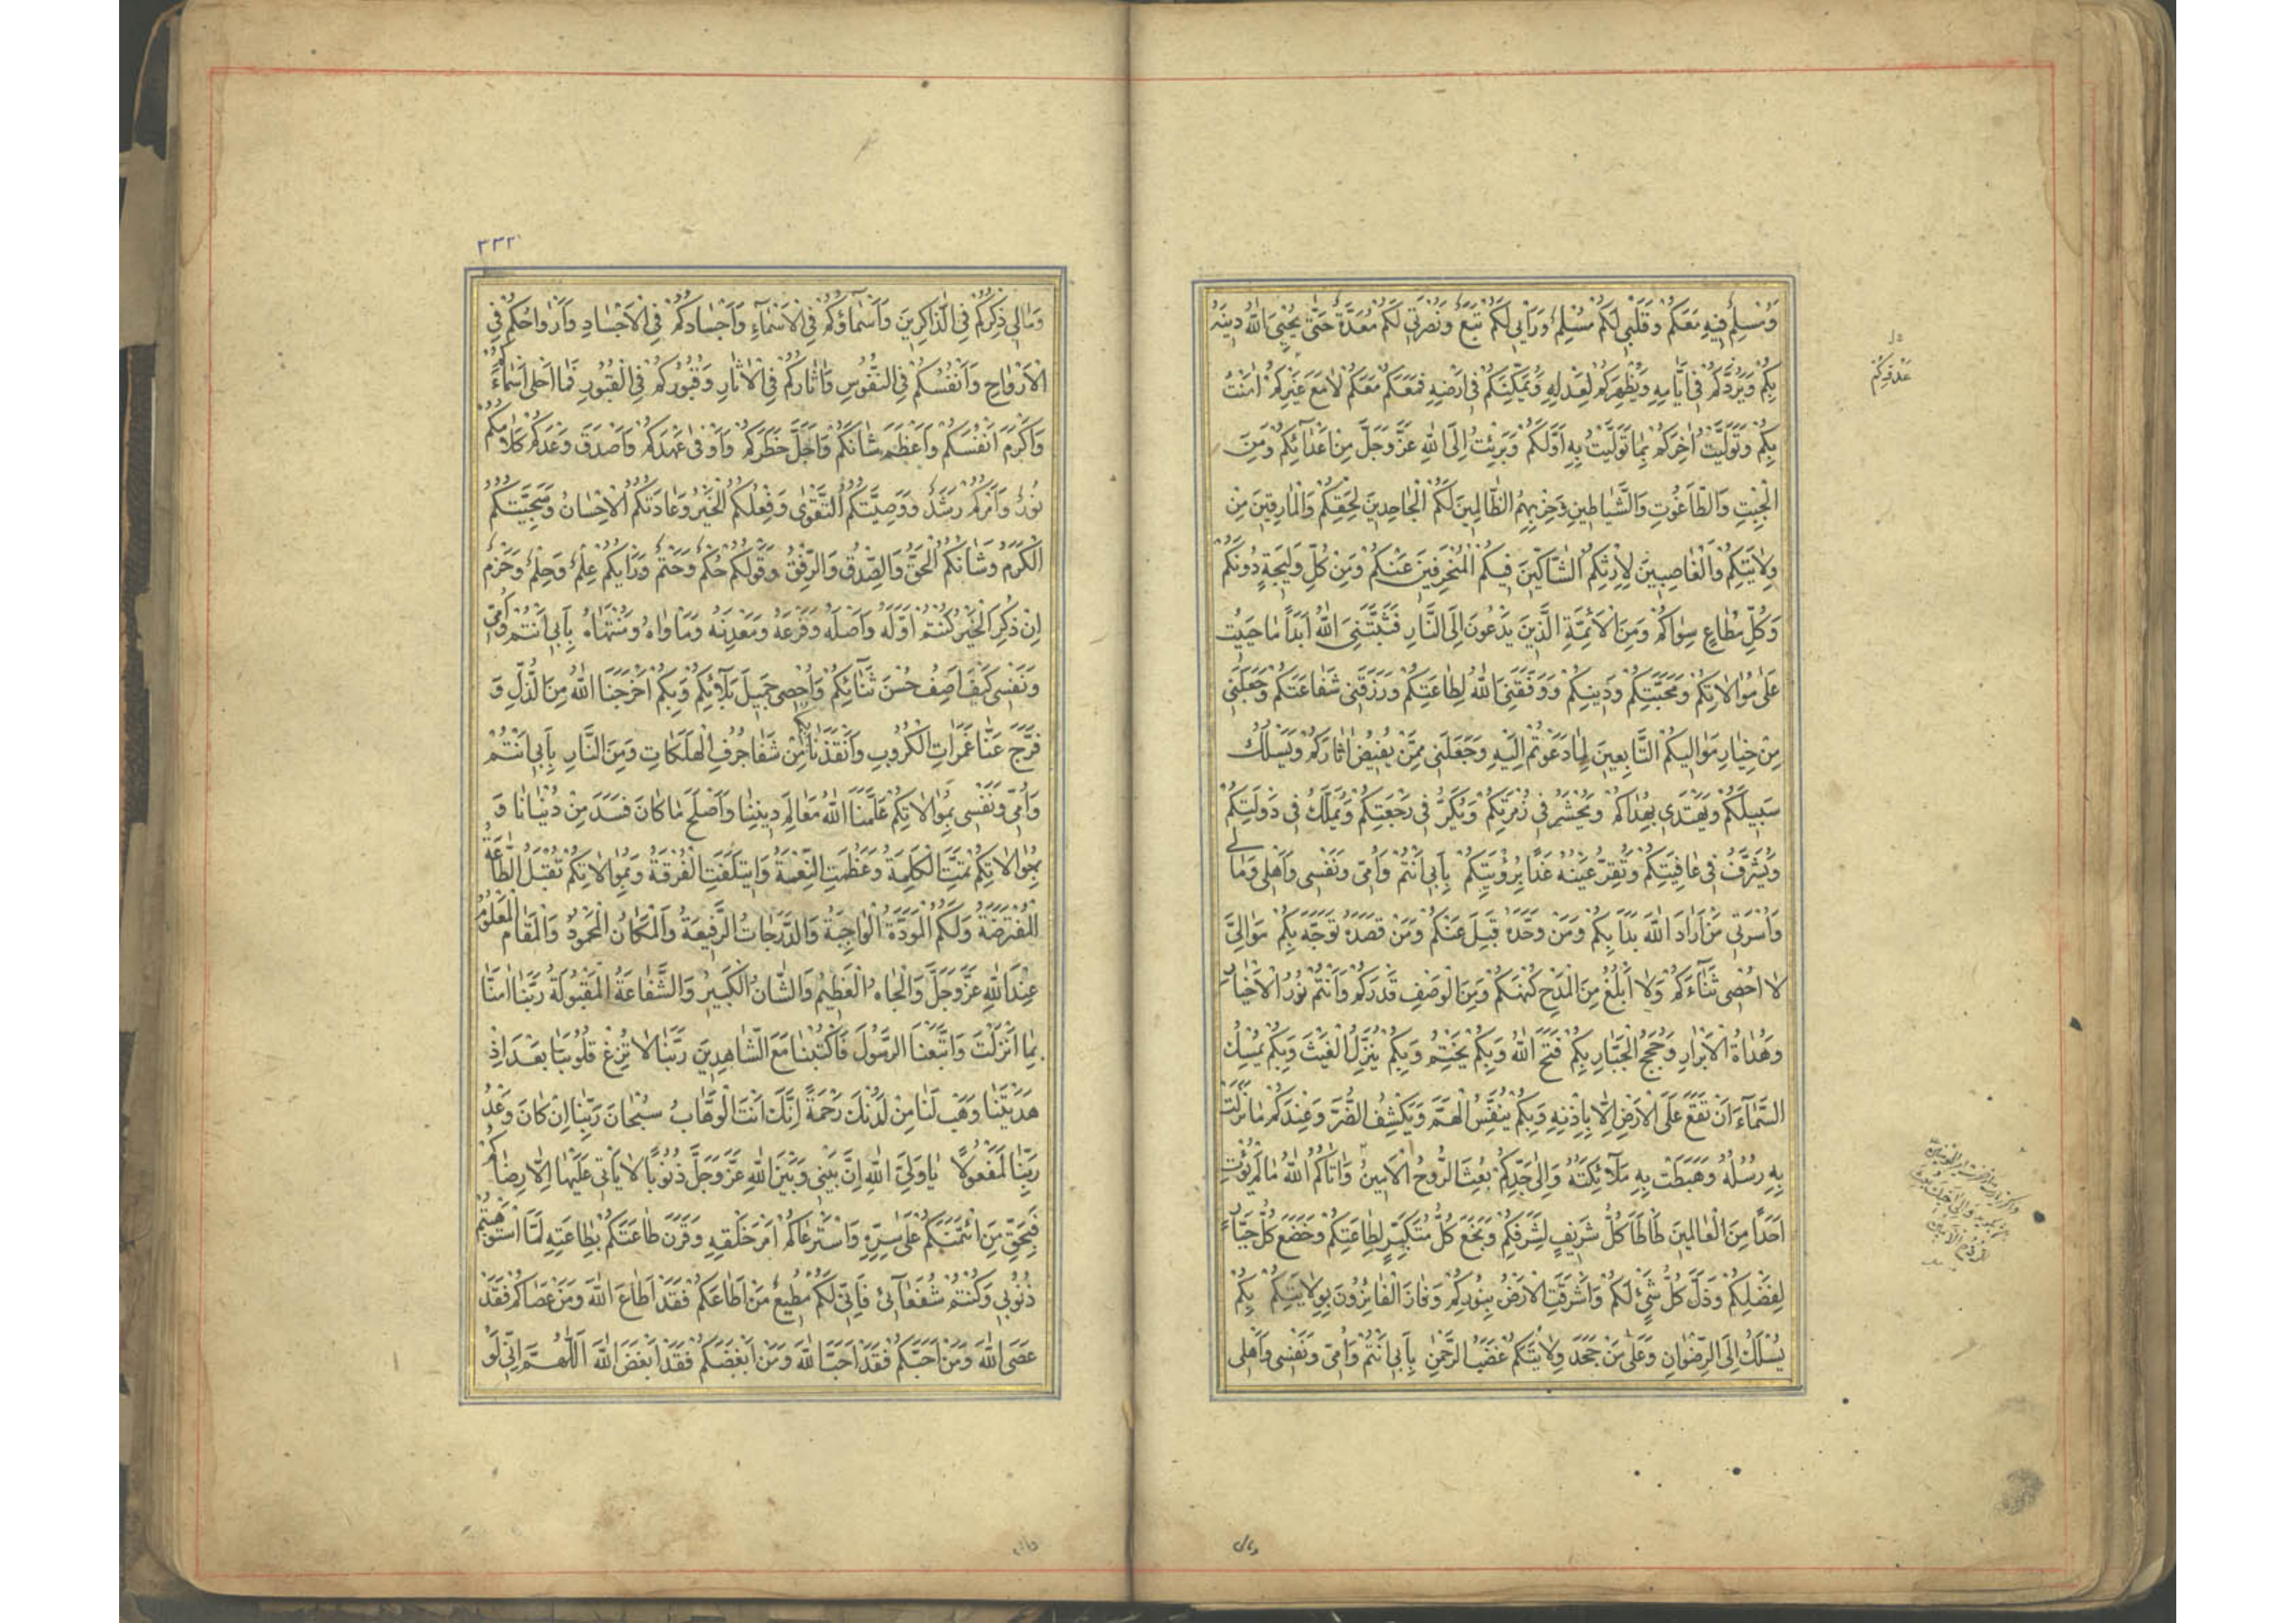 وَمُسَلِّمٌ فِيهِ مَعَكُمْ وَقَلْبِي لَكُمْ مُسَلِّمٌ وَرَأْيِي لَكُمْ تَبَعٌ وَنُصْرَتِي لَكُمْ مُعَدَّةٌ حَتّٰى يُحْيِيَ اللّٰهُ دِينَهُ
بِكُمْ وَيَرُدَّكُمْ فِي اَيَّامِهِ وَيُظْهِرَكُمْ لِعَدْلِهِ وَيُمَكِّنَكُمْ فِي اَرْضِهِ فَمَعَكُمْ مَعَكُمْ لَا مَعَ غَيْرِكُمْ اٰمَنْتُ
بِكُمْ وَتَوَلَّيْتُ اٰخِرَكُمْ بِمَا تَوَلَّيْتُ بِهِ اَوَّلَكُمْ وَبَرِئْتُ اِلَى اللّٰهِ عَزَّ وَجَلَّ مِنْ اَعْدَآئِكُمْ وَمِنَ
الْجِبْتِ وَالطَّاغُوتِ وَالشَّيَاطِينِ وَحِزْبِهِمُ الظَّالِمِينَ لَكُمُ الْجَاحِدِينَ لِحَقِّكُمْ وَالْمَارِقِينَ مِنْ
وِلَايَتِكُمْ وَالْغَاصِبِينَ لِاِرْثِكُمُ الشَّاكِّينَ فِيكُمُ الْمُنْحَرِفِينَ عَنْكُمْ وَمِنْ كُلِّ وَلِيجَةٍ دُونَكُمْ
وَكُلِّ مُطَاعٍ سِوَاكُمْ وَمِنَ الْاَئِمَّةِ الَّذِينَ يَدْعُونَ اِلَى النَّارِ فَثَبَّتَنِيَ اللّٰهُ اَبَدًا مَا حَيِيتُ
عَلٰى مُوَالَاتِكُمْ وَمَحَبَّتِكُمْ وَدِينِكُمْ وَوَفَّقَنِيَ اللّٰهُ لِطَاعَتِكُمْ وَرَزَقَنِي شَفَاعَتَكُمْ وَجَعَلَنِي
مِنْ خِيَارِ مَوَالِيكُمُ التَّابِعِينَ لِمَا دَعَوْتُمْ اِلَيْهِ وَجَعَلَنِي مِمَّنْ يَقْتَصُّ اٰثَارَكُمْ وَيَسْلُكُ
سَبِيلَكُمْ وَيَهْتَدِي بِهُدَاكُمْ وَيُحْشَرُ فِي زُمْرَتِكُمْ وَيَكُرُّ فِي رَجْعَتِكُمْ وَيُمَلَّكُ فِي دَوْلَتِكُمْ
وَيُشَرَّفُ فِي عَافِيَتِكُمْ وَتَقِرُّ عَيْنُهُ غَدًا بِرُؤْيَتِكُمْ بِاَبِي اَنْتُمْ وَاُمِّي وَنَفْسِي وَاَهْلِي وَمَالِي
وَاُسْرَتِي مَنْ اَرَادَ اللّٰهَ بَدَاَ بِكُمْ وَمَنْ وَحَّدَهُ قَبِلَ عَنْكُمْ وَمَنْ قَصَدَهُ تَوَجَّهَ بِكُمْ مَوَالِيَّ
لَا اُحْصِي ثَنَآءَكُمْ وَلَا اَبْلُغُ مِنَ الْمَدْحِ كُنْهَكُمْ وَمِنَ الْوَصْفِ قَدْرَكُمْ وَاَنْتُمْ نُورُ الْاَخْيَارِ
وَهُدَاةُ الْاَبْرَارِ وَحُجَجُ الْجَبَّارِ بِكُمْ فَتَحَ اللّٰهُ وَبِكُمْ يَخْتِمُ وَبِكُمْ يُنَزِّلُ الْغَيْثَ وَبِكُمْ يُمْسِكُ
السَّمَآءَ اَنْ تَقَعَ عَلَى الْاَرْضِ اِلَّا بِاِذْنِهِ وَبِكُمْ يُنَفِّسُ الْهَمَّ وَيَكْشِفُ الضُّرَّ وَعِنْدَكُمْ مَا نَزَلَتْ
بِهِ رُسُلُهُ وَهَبَطَتْ بِهِ مَلَآئِكَتُهُ وَاِلٰى جَدِّكُمْ بُعِثَ الرُّوحُ الْاَمِينُ وَاٰتَاكُمُ اللّٰهُ مَا لَمْ يُؤْتِ
اَحَدًا مِنَ الْعَالَمِينَ طَأْطَأَ كُلُّ شَرِيفٍ لِشَرَفِكُمْ وَبَخَعَ كُلُّ مُتَكَبِّرٍ لِطَاعَتِكُمْ وَخَضَعَ كُلُّ جَبَّارٍ
لِفَضْلِكُمْ وَذَلَّ كُلُّ شَيْءٍ لَكُمْ وَاَشْرَقَتِ الْاَرْضُ بِنُورِكُمْ وَفَازَ الْفَائِزُونَ بِوِلَايَتِكُمْ بِكُمْ
يُسْلَكُ اِلَى الرِّضْوَانِ وَعَلٰى مَنْ جَحَدَ وِلَايَتَكُمْ غَضَبُ الرَّحْمٰنِ بِاَبِي اَنْتُمْ وَاُمِّي وَنَفْسِي وَاَهْلِي
٣٣٢
وَمَالِي ذِكْرُكُمْ فِي الذَّاكِرِينَ وَاَسْمَآؤُكُمْ فِي الْاَسْمَآءِ وَاَجْسَادُكُمْ فِي الْاَجْسَادِ وَاَرْوَاحُكُمْ فِي
الْاَرْوَاحِ وَاَنْفُسُكُمْ فِي النُّفُوسِ وَاٰثَارُكُمْ فِي الْاٰثَارِ وَقُبُورُكُمْ فِي الْقُبُورِ فَمَا اَحْلٰى اَسْمَآءَكُمْ
وَاَكْرَمَ اَنْفُسَكُمْ وَاَعْظَمَ شَاْنَكُمْ وَاَجَلَّ خَطَرَكُمْ وَاَوْفٰى عَهْدَكُمْ وَاَصْدَقَ وَعْدَكُمْ كَلَامُكُمْ
نُورٌ وَاَمْرُكُمْ رُشْدٌ وَوَصِيَّتُكُمُ التَّقْوٰى وَفِعْلُكُمُ الْخَيْرُ وَعَادَتُكُمُ الْاِحْسَانُ وَسَجِيَّتُكُمُ
الْكَرَمُ وَشَاْنُكُمُ الْحَقُّ وَالصِّدْقُ وَالرِّفْقُ وَقَوْلُكُمْ حُكْمٌ وَحَتْمٌ وَرَاْيُكُمْ عِلْمٌ وَحِلْمٌ وَحَزْمٌ
اِنْ ذُكِرَ الْخَيْرُ كُنْتُمْ اَوَّلَهُ وَاَصْلَهُ وَفَرْعَهُ وَمَعْدِنَهُ وَمَاْوَاهُ وَمُنْتَهَاهُ بِاَبِي اَنْتُمْ وَاُمِّي
وَنَفْسِي كَيْفَ اَصِفُ حُسْنَ ثَنَآئِكُمْ وَاُحْصِي جَمِيلَ بَلَآئِكُمْ وَبِكُمْ اَخْرَجَنَا اللّٰهُ مِنَ الذُّلِّ وَ
فَرَّجَ عَنَّا غَمَرَاتِ الْكُرُوبِ وَاَنْقَذَنَا بِكُمْ مِنْ شَفَا جُرُفِ الْهَلَكَاتِ وَمِنَ النَّارِ بِاَبِي اَنْتُمْ
وَاُمِّي وَنَفْسِي بِمُوَالَاتِكُمْ عَلَّمَنَا اللّٰهُ مَعَالِمَ دِينِنَا وَاَصْلَحَ مَا كَانَ فَسَدَ مِنْ دُنْيَانَا وَ
بِمُوَالَاتِكُمْ تَمَّتِ الْكَلِمَةُ وَعَظُمَتِ النِّعْمَةُ وَايتَلَفَتِ الْفُرْقَةُ وَبِمُوَالَاتِكُمْ تُقْبَلُ الطَّاعَةُ
الْمُفْتَرَضَةُ وَلَكُمُ الْمَوَدَّةُ الْوَاجِبَةُ وَالدَّرَجَاتُ الرَّفِيعَةُ وَالْمَكَانُ الْمَحْمُودُ وَالْمَقَامُ الْمَعْلُومُ
عِنْدَ اللّٰهِ عَزَّ وَجَلَّ وَالْجَاهُ الْعَظِيمُ وَالشَّاْنُ الْكَبِيرُ وَالشَّفَاعَةُ الْمَقْبُولَةُ رَبَّنَا اٰمَنَّا
بِمَا اَنْزَلْتَ وَاتَّبَعْنَا الرَّسُولَ فَاكْتُبْنَا مَعَ الشَّاهِدِينَ رَبَّنَا لَا تُزِغْ قُلُوبَنَا بَعْدَ اِذْ
هَدَيْتَنَا وَهَبْ لَنَا مِنْ لَدُنْكَ رَحْمَةً اِنَّكَ اَنْتَ الْوَهَّابُ سُبْحَانَ رَبِّنَا اِنْ كَانَ وَعْدُ
رَبِّنَا لَمَفْعُولًا يَا وَلِيَّ اللّٰهِ اِنَّ بَيْنِي وَبَيْنَ اللّٰهِ عَزَّ وَجَلَّ ذُنُوبًا لَا يَاْتِي عَلَيْهَا اِلَّا رِضَاكُمْ
فَبِحَقِّ مَنِ ائْتَمَنَكُمْ عَلٰى سِرِّهِ وَاسْتَرْعَاكُمْ اَمْرَ خَلْقِهِ وَقَرَنَ طَاعَتَكُمْ بِطَاعَتِهِ لَمَّا اسْتَوْهَبْتُمْ
ذُنُوبِي وَكُنْتُمْ شُفَعَآئِي فَاِنِّي لَكُمْ مُطِيعٌ مَنْ اَطَاعَكُمْ فَقَدْ اَطَاعَ اللّٰهَ وَمَنْ عَصَاكُمْ فَقَدْ
عَصَى اللّٰهَ وَمَنْ اَحَبَّكُمْ فَقَدْ اَحَبَّ اللّٰهَ وَمَنْ اَبْغَضَكُمْ فَقَدْ اَبْغَضَ اللّٰهَ اَللّٰهُمَّ اِنِّي لَوْ